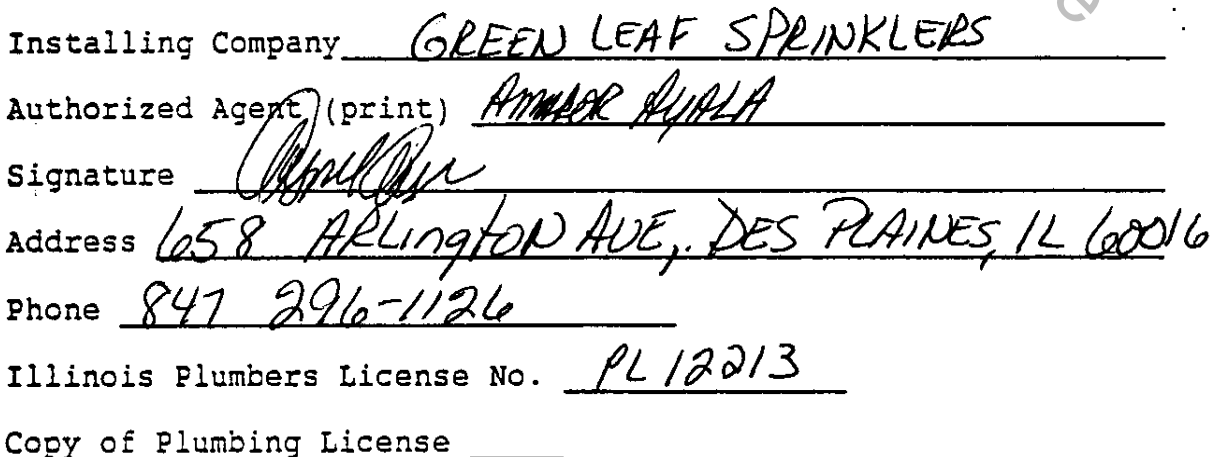 Installing Company GREEN LEAF SPRINKLERS
Authorized Agent (print) AYALA
Signature
Address 658 ARLington AVE, DES PLAINES, IL 60016
Phone 847 296-1126
Illinois Plumbers License No. PL 12213
Copy of Plumbing License